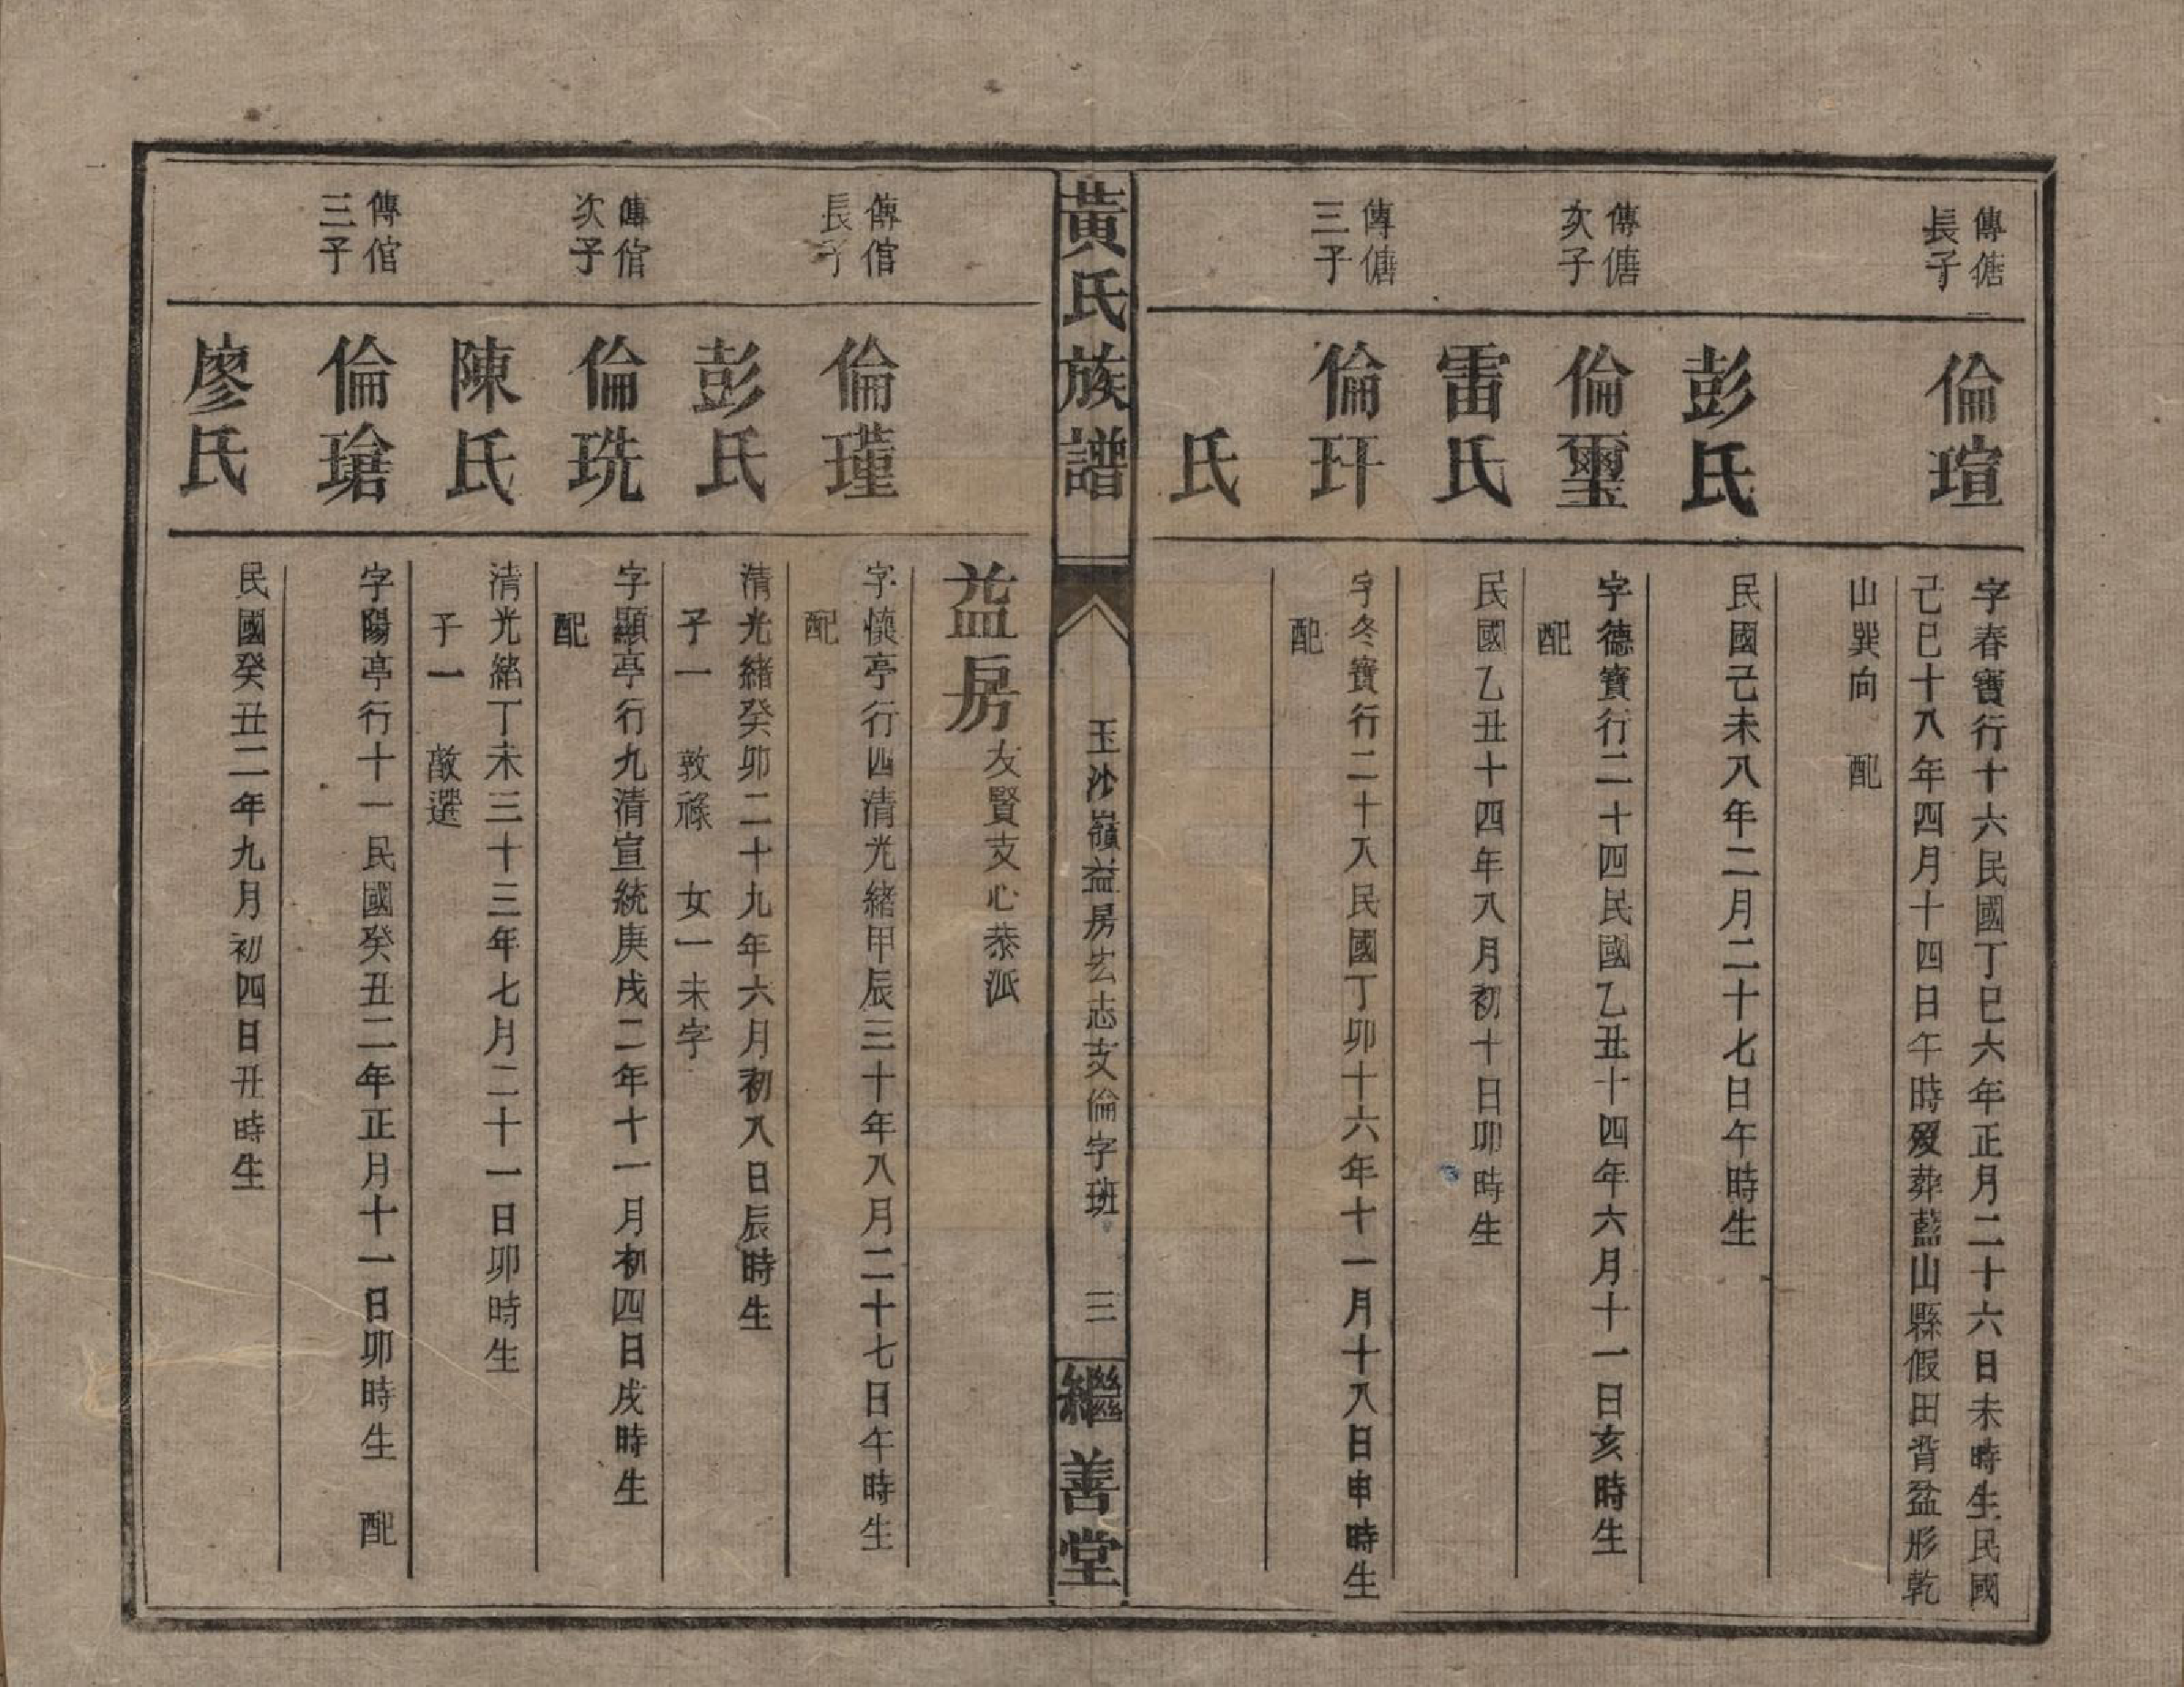 傳傏
長子
倫瑄
字春寶行十六民國丁巳六年正月二十六日未時生民國
己巳十八年四月十四日午時歿葬藍山縣假田背盆形乾
山巽向 配
彭氏
民國己未八年二月二十七日午時生
傳傏
次子
倫璽
字德寶行二十四民國乙丑十四年六月十一日亥時生
配
雷氏
民國乙丑十四年八月初十日卯時生
傳傏
三子
倫玕
字冬寶行二十八民國丁卯十六年十一月十八日申時生
配
氏
黃氏族譜
玉沙嶺益房厷志支倫字班 三
繼善堂
益房
友賢支心恭派
傳倌
長子
倫瑾
字懷亭行四清光緒甲辰三十年八月二十七日午時生
配
彭氏
清光緒癸卯二十九年六月初八日辰時生
子一 敦祿 女一未字
傳倌
次子
倫珗
字顯亭行九清宣統庚戌二年十一月初四日戌時生
配
陳氏
清光緒丁未三十三年七月二十一日卯時生
子一 敵選
傳倌
三子
倫瑲
字陽亭行十一民國癸丑二年正月十一日卯時生 配
廖氏
民國癸丑二年九月初四日丑時生